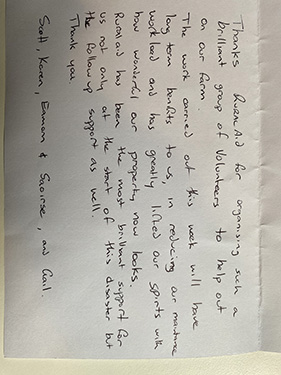 Thanks Rural Aid for organising such a
brilliant group of Volunteers to help out
on our farm.
The work carried out this week will have
long term benifits to us, in reducing our maintance
work load and has greatly lifted our spirits with
how wonderful our property now looks.
Rural aid has been the most brilliant support for
us not only at the start of this disaster but
the follow up support as well.
Thank you
Scott, Karen, Eamon & Saoirse, and Gail.